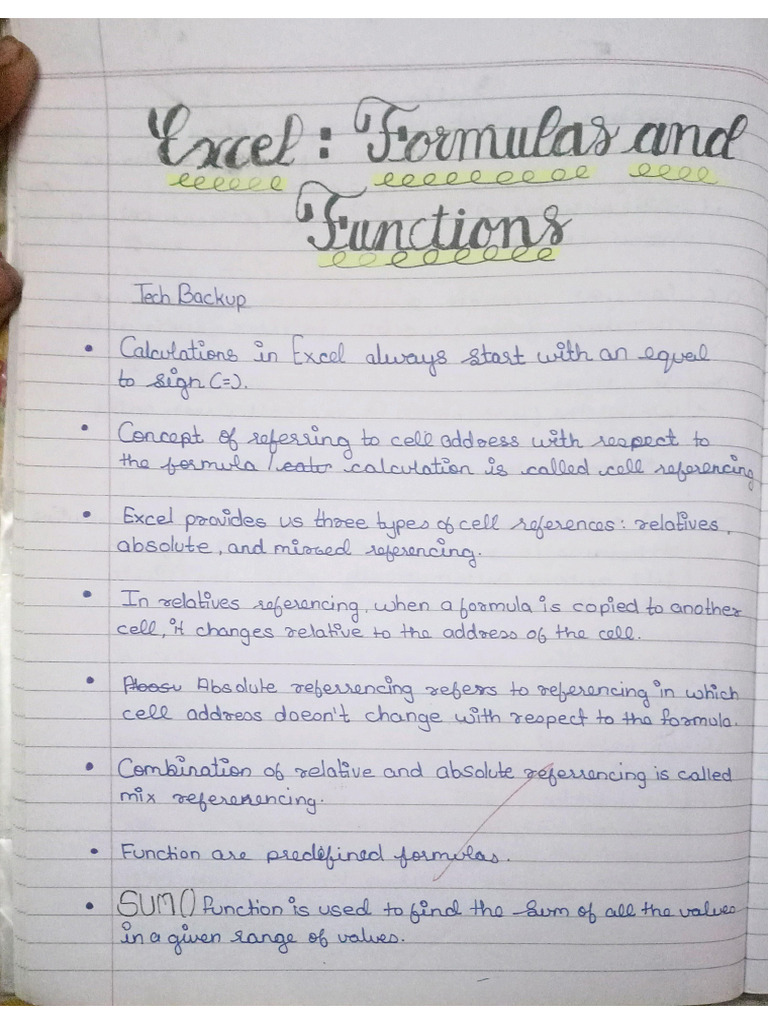 Excel : Formulas and
Functions
Tech Backup
• Calculations in Excel always start with an equal
to sign (=).
• Concept of referring to cell address with respect to
the formula / calculation is called cell referencing
• Excel provides us three types of cell references: relatives,
absolute, and mixed referencing.
• In relatives referencing, when a formula is copied to another
cell, it changes relative to the address of the cell.
• Absolute referrencing refers to referencing in which
cell address doeon't change with respect to the formula.
• Combination of relative and absolute referrencing is called
mix referenencing.
• Function are predefined formulas.
• SUM() function is used to find the sum of all the values
in a given range of values.